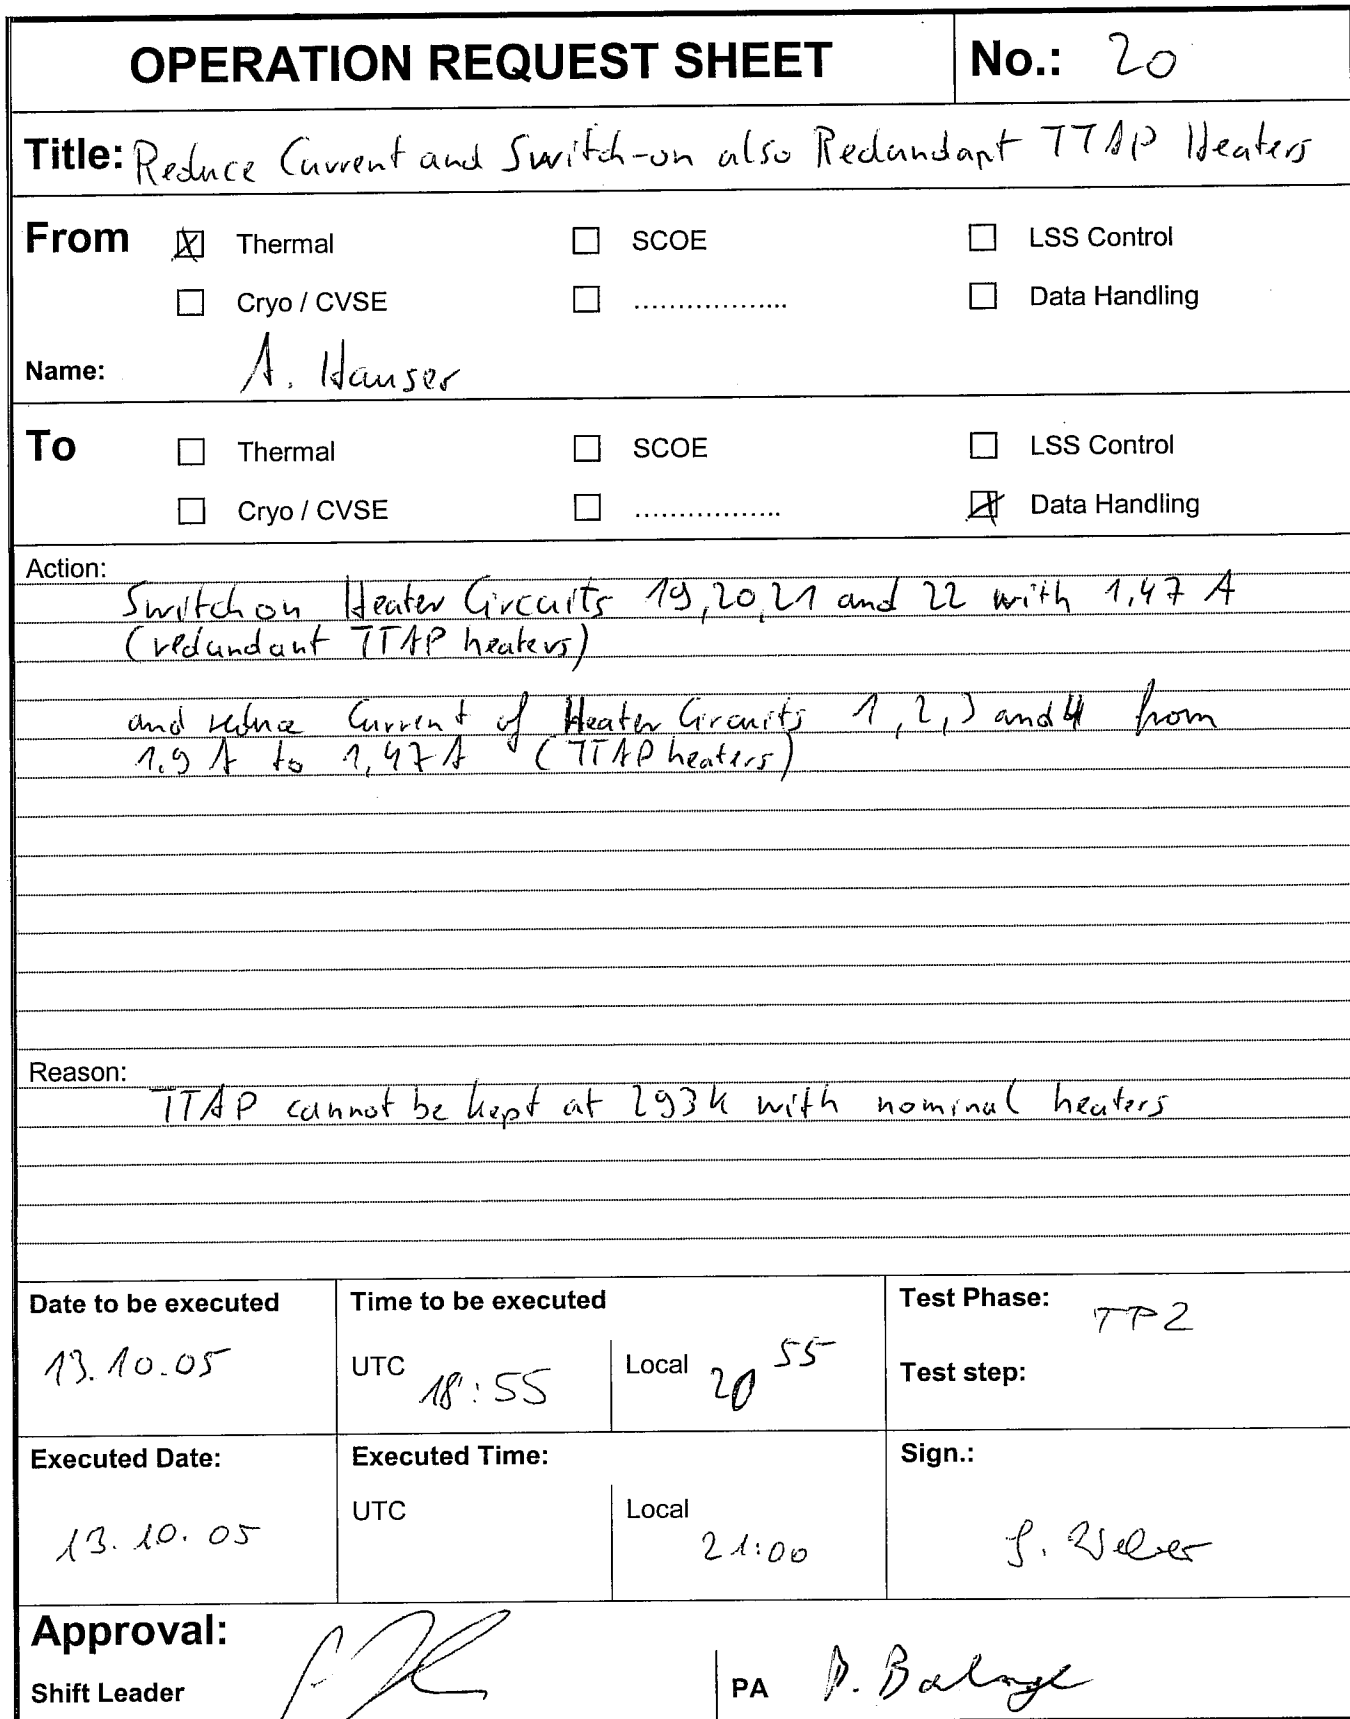 OPERATION REQUEST SHEET No.: 20
Title: Reduce Current and Switch-on also Redundant TTAP Heaters
From Thermal SCOE LSS Control
Cryo / CVSE .................. Data Handling
Name: A. Hauser
To Thermal SCOE LSS Control
Cryo / CVSE ................. Data Handling
Action:
Switch on Heater Circuits 19, 20, 21 and 22 with 1,47 A
(redundant TTAP heaters)
and reduce Current of Heater Circuits 1, 2, 3 and 4 from
1,9 A to 1,47 A (TTAP heaters)
Reason:
TTAP cannot be kept at 293K with nominal heaters
Date to be executed Time to be executed Test Phase: TP2
13.10.05 UTC 18:55 Local 20 55 Test step:
Executed Date: Executed Time: Sign.:
13.10.05 UTC Local 21:00 Weber
Approval:
Shift Leader PA